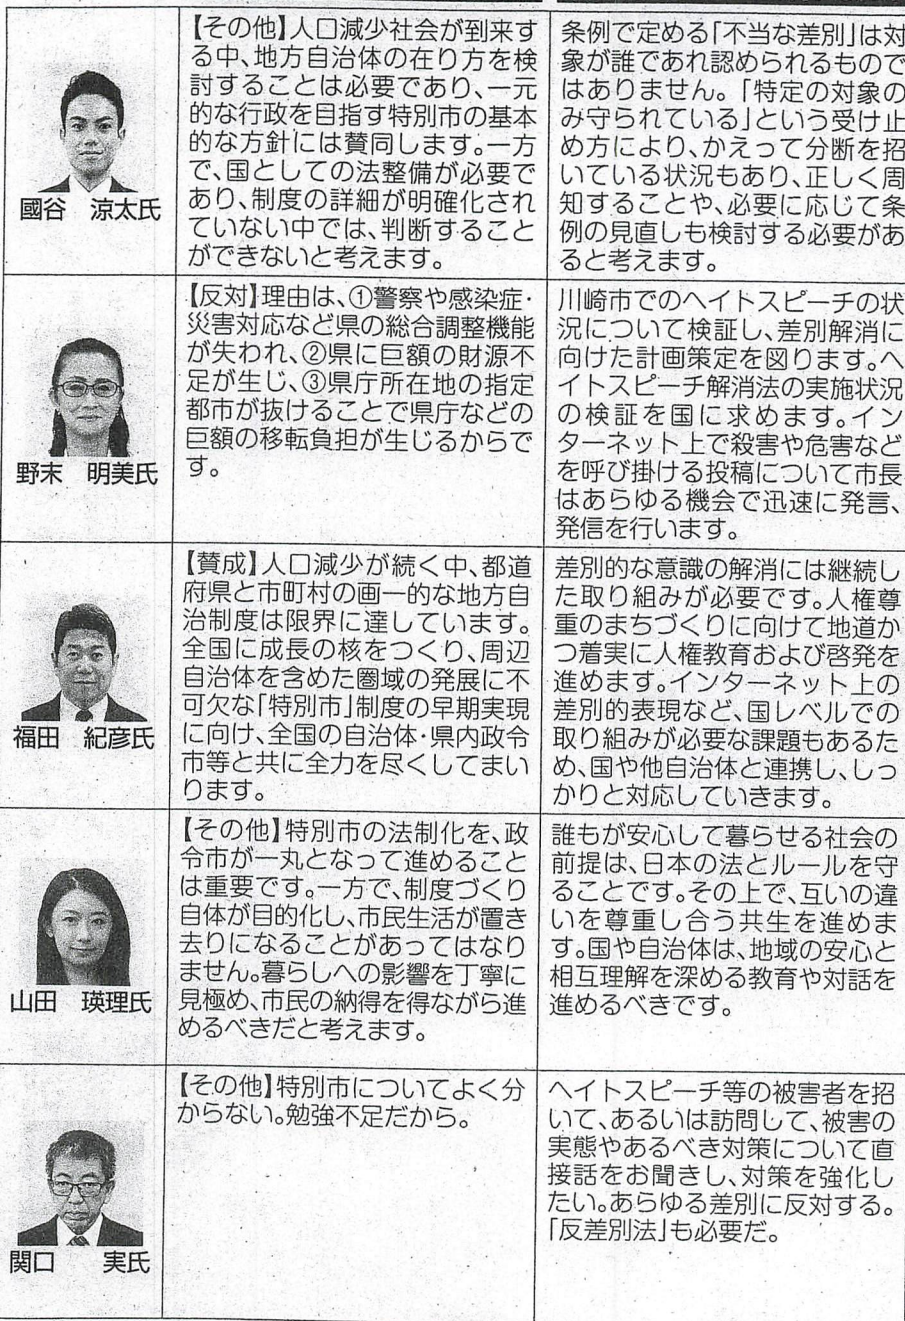 國谷　涼太氏
【その他】人口減少社会が到来す
る中、地方自治体の在り方を検
討することは必要であり、一元
的な行政を目指す特別市の基本
的な方針には賛同します。一方
で、国としての法整備が必要で
あり、制度の詳細が明確化され
ていない中では、判断すること
ができないと考えます。
条例で定める「不当な差別」は対
象が誰であれ認められるもので
はありません。「特定の対象の
み守られている」という受け止
め方により、かえって分断を招
いている状況もあり、正しく周
知することや、必要に応じて条
例の見直しも検討する必要があ
ると考えます。
野末　明美氏
【反対】理由は、①警察や感染症・
災害対応など県の総合調整機能
が失われ、②県に巨額の財源不
足が生じ、③県庁所在地の指定
都市が抜けることで県庁などの
巨額の移転負担が生じるからで
す。
川崎市でのヘイトスピーチの状
況について検証し、差別解消に
向けた計画策定を図ります。ヘ
イトスピーチ解消法の実施状況
の検証を国に求めます。イン
ターネット上で殺害や危害など
を呼び掛ける投稿について市長
はあらゆる機会で迅速に発言、
発信を行います。
福田　紀彦氏
【賛成】人口減少が続く中、都道
府県と市町村の画一的な地方自
治制度は限界に達しています。
全国に成長の核をつくり、周辺
自治体を含めた圏域の発展に不
可欠な「特別市」制度の早期実現
に向け、全国の自治体・県内政令
市等と共に全力を尽くしてまい
ります。
差別的な意識の解消には継続し
た取り組みが必要です。人権尊
重のまちづくりに向けて地道か
つ着実に人権教育および啓発を
進めます。インターネット上の
差別的表現など、国レベルでの
取り組みが必要な課題もあるた
め、国や他自治体と連携し、しっ
かりと対応していきます。
山田　瑛理氏
【その他】特別市の法制化を、政
令市が一丸となって進めること
は重要です。一方で、制度づくり
自体が目的化し、市民生活が置き
去りになることがあってはなり
ません。暮らしへの影響を丁寧に
見極め、市民の納得を得ながら進
めるべきだと考えます。
誰もが安心して暮らせる社会の
前提は、日本の法とルールを守
ることです。その上で、互いの違
いを尊重し合う共生を進めま
す。国や自治体は、地域の安心と
相互理解を深める教育や対話を
進めるべきです。
関口　実氏
【その他】特別市についてよく分
からない。勉強不足だから。
ヘイトスピーチ等の被害者を招
いて、あるいは訪問して、被害の
実態やあるべき対策について直
接話をお聞きし、対策を強化し
たい。あらゆる差別に反対する。
「反差別法」も必要だ。